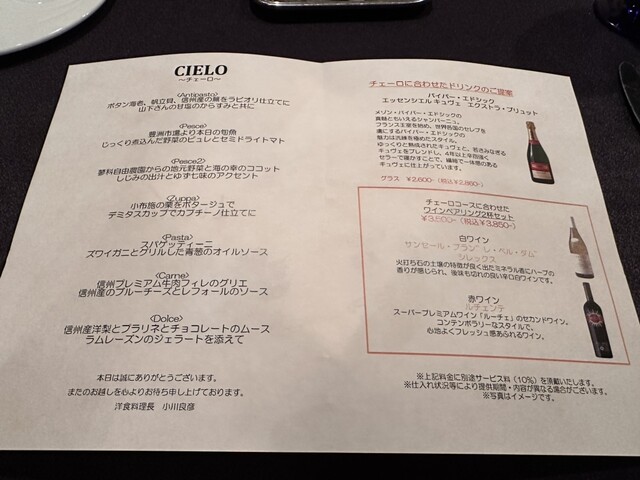 CIELO
～チェーロ～
<Antipasto>
ボタン海老、帆立貝、信州産の蕪をラビオリ仕立てに
山下さんの甘塩のからすみと共に
<Pesce>
豊洲市場より本日の旬魚
じっくり煮込んだ野菜のピュレとセミドライトマト
<Pesce2>
蓼科自由農園からの地元野菜と海の幸のココット
しじみの出汁とゆずじ味のアクセント
<Zuppa>
小布施の栗をポタージュで
デミタスカップでカプチーノ仕立てに
<Pasta>
スパゲッティーニ
ズワイガニとグリルした青葱のオイルソース
<Carne>
信州プレミアム牛肉フィレのグリエ
信州産のブルーチーズとレフォールのソース
<Dolce>
信州産洋梨とプラリネとチョコレートのムース
ラムレーズンのジェラートを添えて
本日は誠にありがとうございます。
またのお越しを心よりお待ち申し上げております。
洋食料理長 小川良彦
チェーロに合わせたドリンクのご提案
パイパー・エドシック
エッセンシエル キュヴェ エクストラ・ブリュット
メゾン・パイパー・エドシックの
真髄ともいえるシャンパーニュ。
フランス王室を始め、世界各国のセレブを
虜にするパイパー・エドシック。
魅力は汎味を極めたスタイル。
ゆっくりと熟成されたキュヴェと、若さみなぎる
キュヴェをブレンドし、4年以上辛抱強く
セラーで寝かすことで、繊細で一体感のある
キュヴェに仕上がっています。
グラス ￥2,600-（税込￥2,860-）
チェーロコースに合わせた
ワインペアリング2杯セット
￥3,500-（税込￥3,850-）
白ワイン
サンセール・ブラン゛レ・ベル・ダム゛
シレックス
火打ち石の土壌の特徴が良く出たミネラル香にハーブの
香りが感じられ、後味も切れの良い辛口白ワインです。
赤ワイン
ルチェンテ
スーパープレミアムワイン「ルーチェ」のセカンドワイン。
コンテンポラリーなスタイルで、
心地よくフレッシュ感あふれるワイン。
※上記料金に別途サービス料（10％）を頂戴いたします。
※仕入れ状況等により提供期間・内容が異なる場合がございます。
※写真はイメージです。